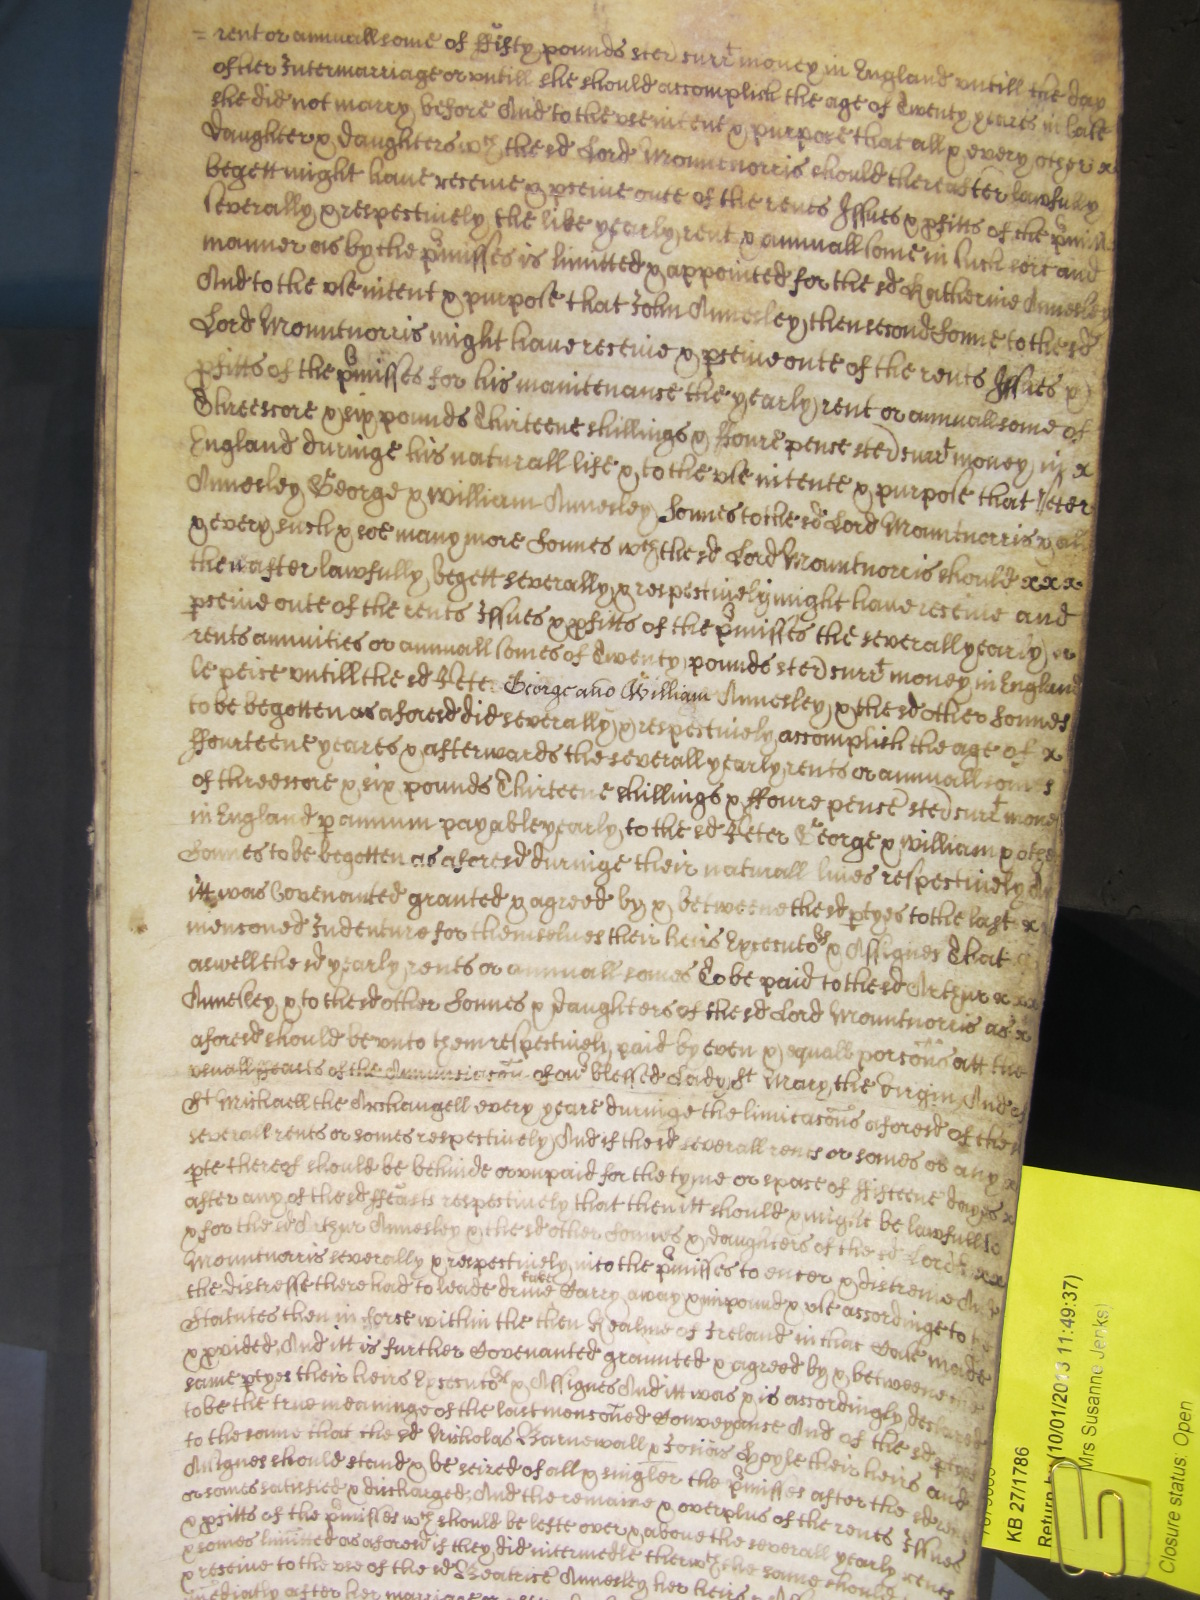 = rent or annuall some of ffifty pounds ster) curr^t money in England untill the day
of her Intermarriage or untill she should accomplish the age of Twenty yeares in case
she did not marry before And to the use intent & purpose that all & every other x
daughter & daughters w^ch the sd Lord Mountnorris should thereafter lawfully
begett might have receive & pceive oute of the rents Issues & pfitts of the pmiss
severally & respectively the like yearly rent & annuall some in such sort and
manner as by the pmisses is limitted & appointed for the sd Katherine Annesley
And to the use intent & purpose that John Annesley then second sonne to the sd
Lord Mountnorris might have receive & pceive oute of the rents Issues &
pfitts of the pmisses for his maintenance the yearly rent or annuall some of
Threescore & six pounds Thirteene shillings & ffoure pence ster) curr^t money in x
England duringe his naturall life & to the use intente & purpose that Peter
Annesley George & William Annesley sonnes to the sd Lord Mountnorris & all
& every such & soe many more sonnes w^ch the sd Lord Mountnorris should x x x
thenafter lawfully begett severally & respectively might have receive and
pceive oute of the rents Issues & pfitts of the pmisses the severall yearly
rents annuities or annuall somes of Twenty pounds ster) curr^t money in England
le peice untill the sd Pete George and William Annesley & the sd other sonnes
to be begotten as aforesd did severally & respectively accomplish the age of x
ffourteene yeares & afterwards the severall yearly rents or annuall somes
of threescore & six pounds Thirteene shillings & ffoure pence ster) curr^t mone
in England p annum payable yearly to the sd Peter George & William & other
sonnes to be begotten as aforesd duringe their naturall lives respectively
itt was Covenanted granted & agreed by & betweene the sd ptyes to the last x
menconed Indenture for themselves their heirs Executo^rs & Assignes That
aswell the sd yearly rents or annuall somes To be paid to the sd Arthur x x x
Annesley & to the sd other sonnes & daughters of the sd Lord Mountnorris as x
aforesd should be unto them respectively paid by even & equall porcons att the
usuall ffeasts of the Annunciacon of ou^r blessed Lady St Mary the virgin And
St Michaell the Archangell every yeare duringe the limitacons aforesd of the
severall rents or somes respectively And if the sd severall rents or somes or any x
pte thereof should be behinde or unpaid for the tyme or space of ffifteene dayes x
after any of the sd ffeasts respectively that then itt should & might be lawfull to
& for the sd Arthur Annesley & the sd other sonnes & daughters of the sd Lord x
Mountnorris severally & respectively into the pmisses to enter & distreine
the distresse there had to leade drive take Carry away & impound & use accordinge to
Statutes then in force within the then Realme of Ireland in that Case made
& pvided And itt is further Covenanted graunted & agreed by & betweene the
same ptyes their heirs Executo^rs & Assignes And itt was & is accordingly declared
to be the true meaninge of the last menconed Conveyance And of the sd ptyes
to the same that the sd Nicholas Barnewall & Josias Hoyle their heirs and
Assignes should stand & be seized of all & singler the pmisses after the sd ren
or somes satisfied & discharged And the remaine & overplus of the rents Issues
& pfitts of the pmisses w^ch should be lefte over & above the severall yearly rents
& somes limitted as aforesd if they did intermedle therw^th the same should
& receive to the use of the sd Beatrice Annesley her heirs
imediatly after her marriage
KB 27/1786
Return by (10/01/2013 11:49:37)
Mrs Susanne Jenks)
Closure status: Open